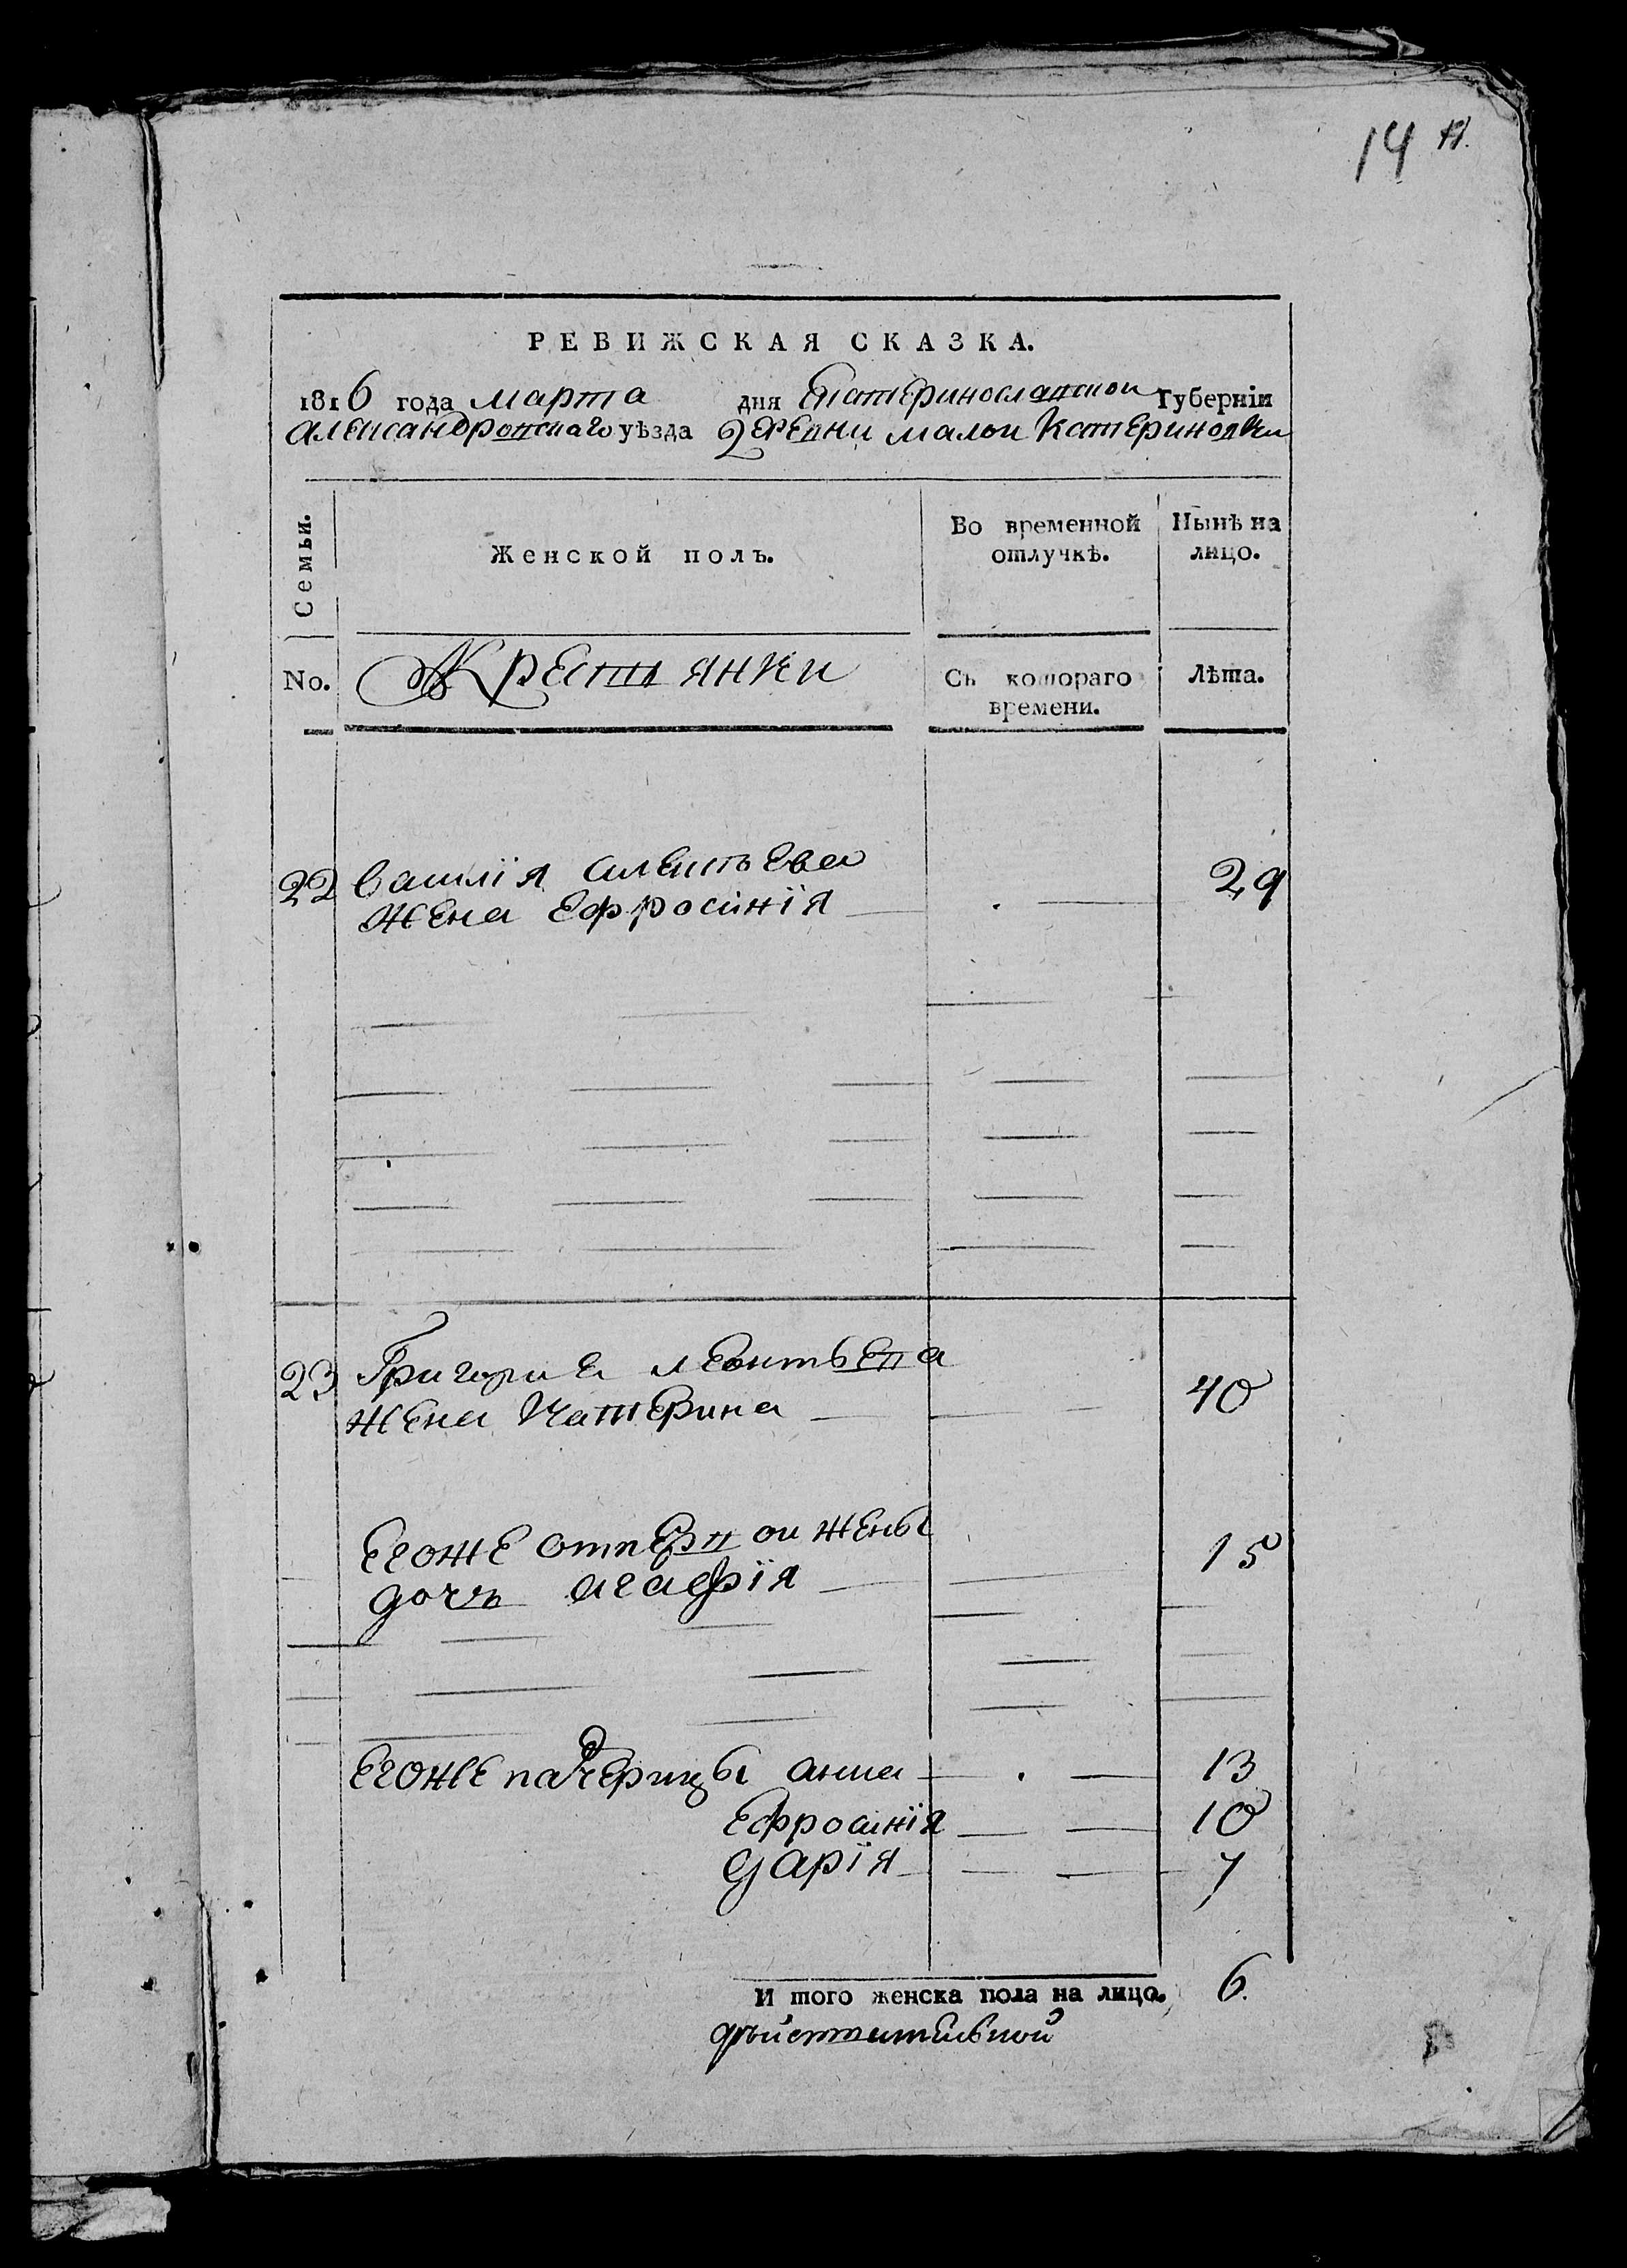 14 п.
РЕВИЖСКАЯ СКАЗКА.
1816 года марта дня Екатеринославской Губерніи
александровскаго уѣзда деревни малой Катериновки
Семьи.
Женской полъ.
Во временной отлучкѣ.
Нынѣ на лицо.
No.
Крестьянки
Съ котораго времени.
Лѣта.
22 василія алексѣева
жена Ефросинія 29
23 Григория леонтьева
жена Катерина 40
Егоже отпервой жены
дочь агафія 15
Егоже падчерицы анна 13
Ефросинія 10
дарія 7
И того женска пола на лицо. 6.